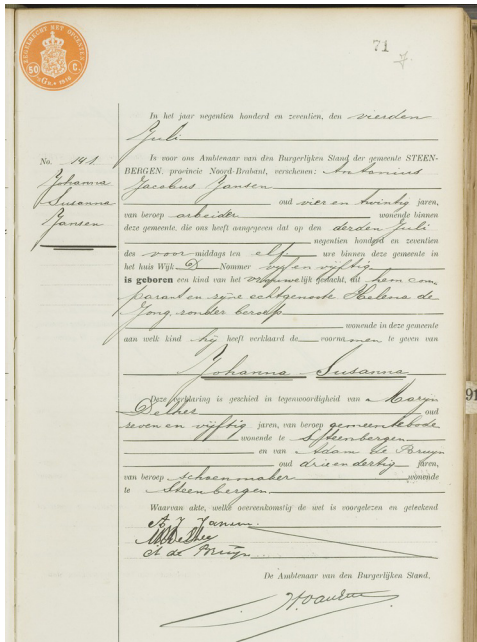 ZEGELRECHT MET OPCENTEN
50 C.
71
In het jaar negentien honderd en zeventien, den vierden
Juli
No. 141
Johanna
Susanna
Jansen
Is voor ons Ambtenaar van den Burgerlijken Stand der gemeente STEEN-
BERGEN, provincie Noord-Brabant, verschenen: Antonius
Jacobus Jansen
oud vier en twintig jaren,
van beroep arbeider wonende binnen
deze gemeente, die ons heeft aangegeven dat op den derden Juli
negentien honderd en zeventien
des voor middags ten elf ure binnen deze gemeente in
het huis Wijk D Nommer vijf en vijftig
is geboren een kind van het vrouwelijk geslacht, uit hem com-
parant en zijne echtgenoote Helena de
Jong, zonder beroep
wonende in deze gemeente
aan welk kind hij heeft verklaard de voornamen te geven van
Johanna Susanna
Deze verklaring is geschied in tegenwoordigheid van Marijn
oud
zeven en vijftig jaren, van beroep gemeentebode
wonende te Steenbergen
en van Adam de Bruyn
oud drie en dertig jaren,
van beroep schoenmaker wonende
te Steenbergen
Waarvan akte, welke overeenkomstig de wet is voorgelezen en geteekend
A J Jansen
A de Bruyn
De Ambtenaar van den Burgerlijken Stand,
91